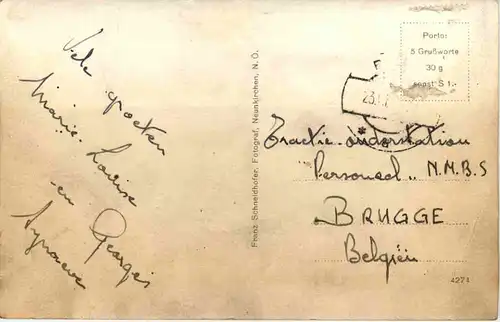 Vele groeten
Marie-Louise
en Georges
Franz Schneidhofer, Fotograf, Neunkirchen, N. Ö.
Porto:
5 Grußworte
30 g
sonst S 1.-
23.
Tractie-onderstation
"Personeel" N.M.B.S
BRUGGE
Belgiën
4271